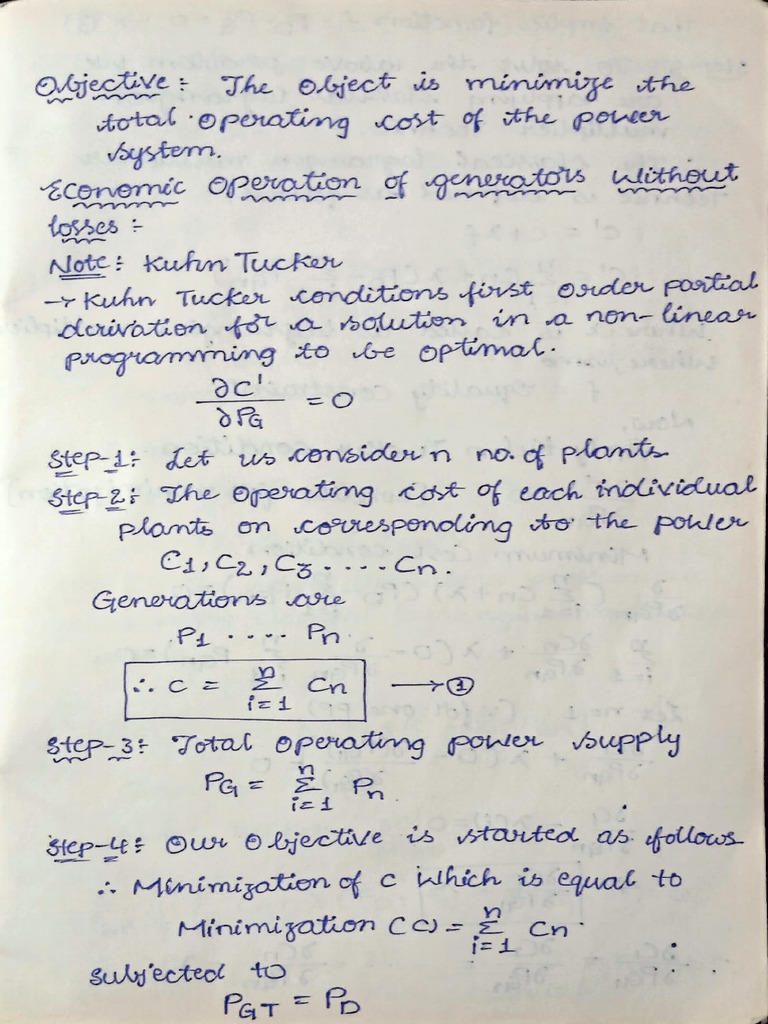 Objective :- The object is minimize the
total operating cost of the power
system.
Economic operation of generators without
losses :-
Note : Kuhn Tucker
→ Kuhn Tucker conditions first order partial
derivation for a solution in a non-linear
programming to be optimal.
∂C' / ∂PG = 0
Step-1: Let us consider n no. of plants
Step-2: The operating cost of each individual
plants on corresponding to the power
C1, C2, C3 .... Cn.
Generations are
P1 .... Pn
∴ C = n Σ i=1 Cn → ①
Step-3: Total operating power supply
PG = n Σ i=1 Pn
Step-4: Our Objective is started as follows
∴ Minimization of C which is equal to
Minimization C(C) = n Σ i=1 Cn
subjected to
PGT = PD